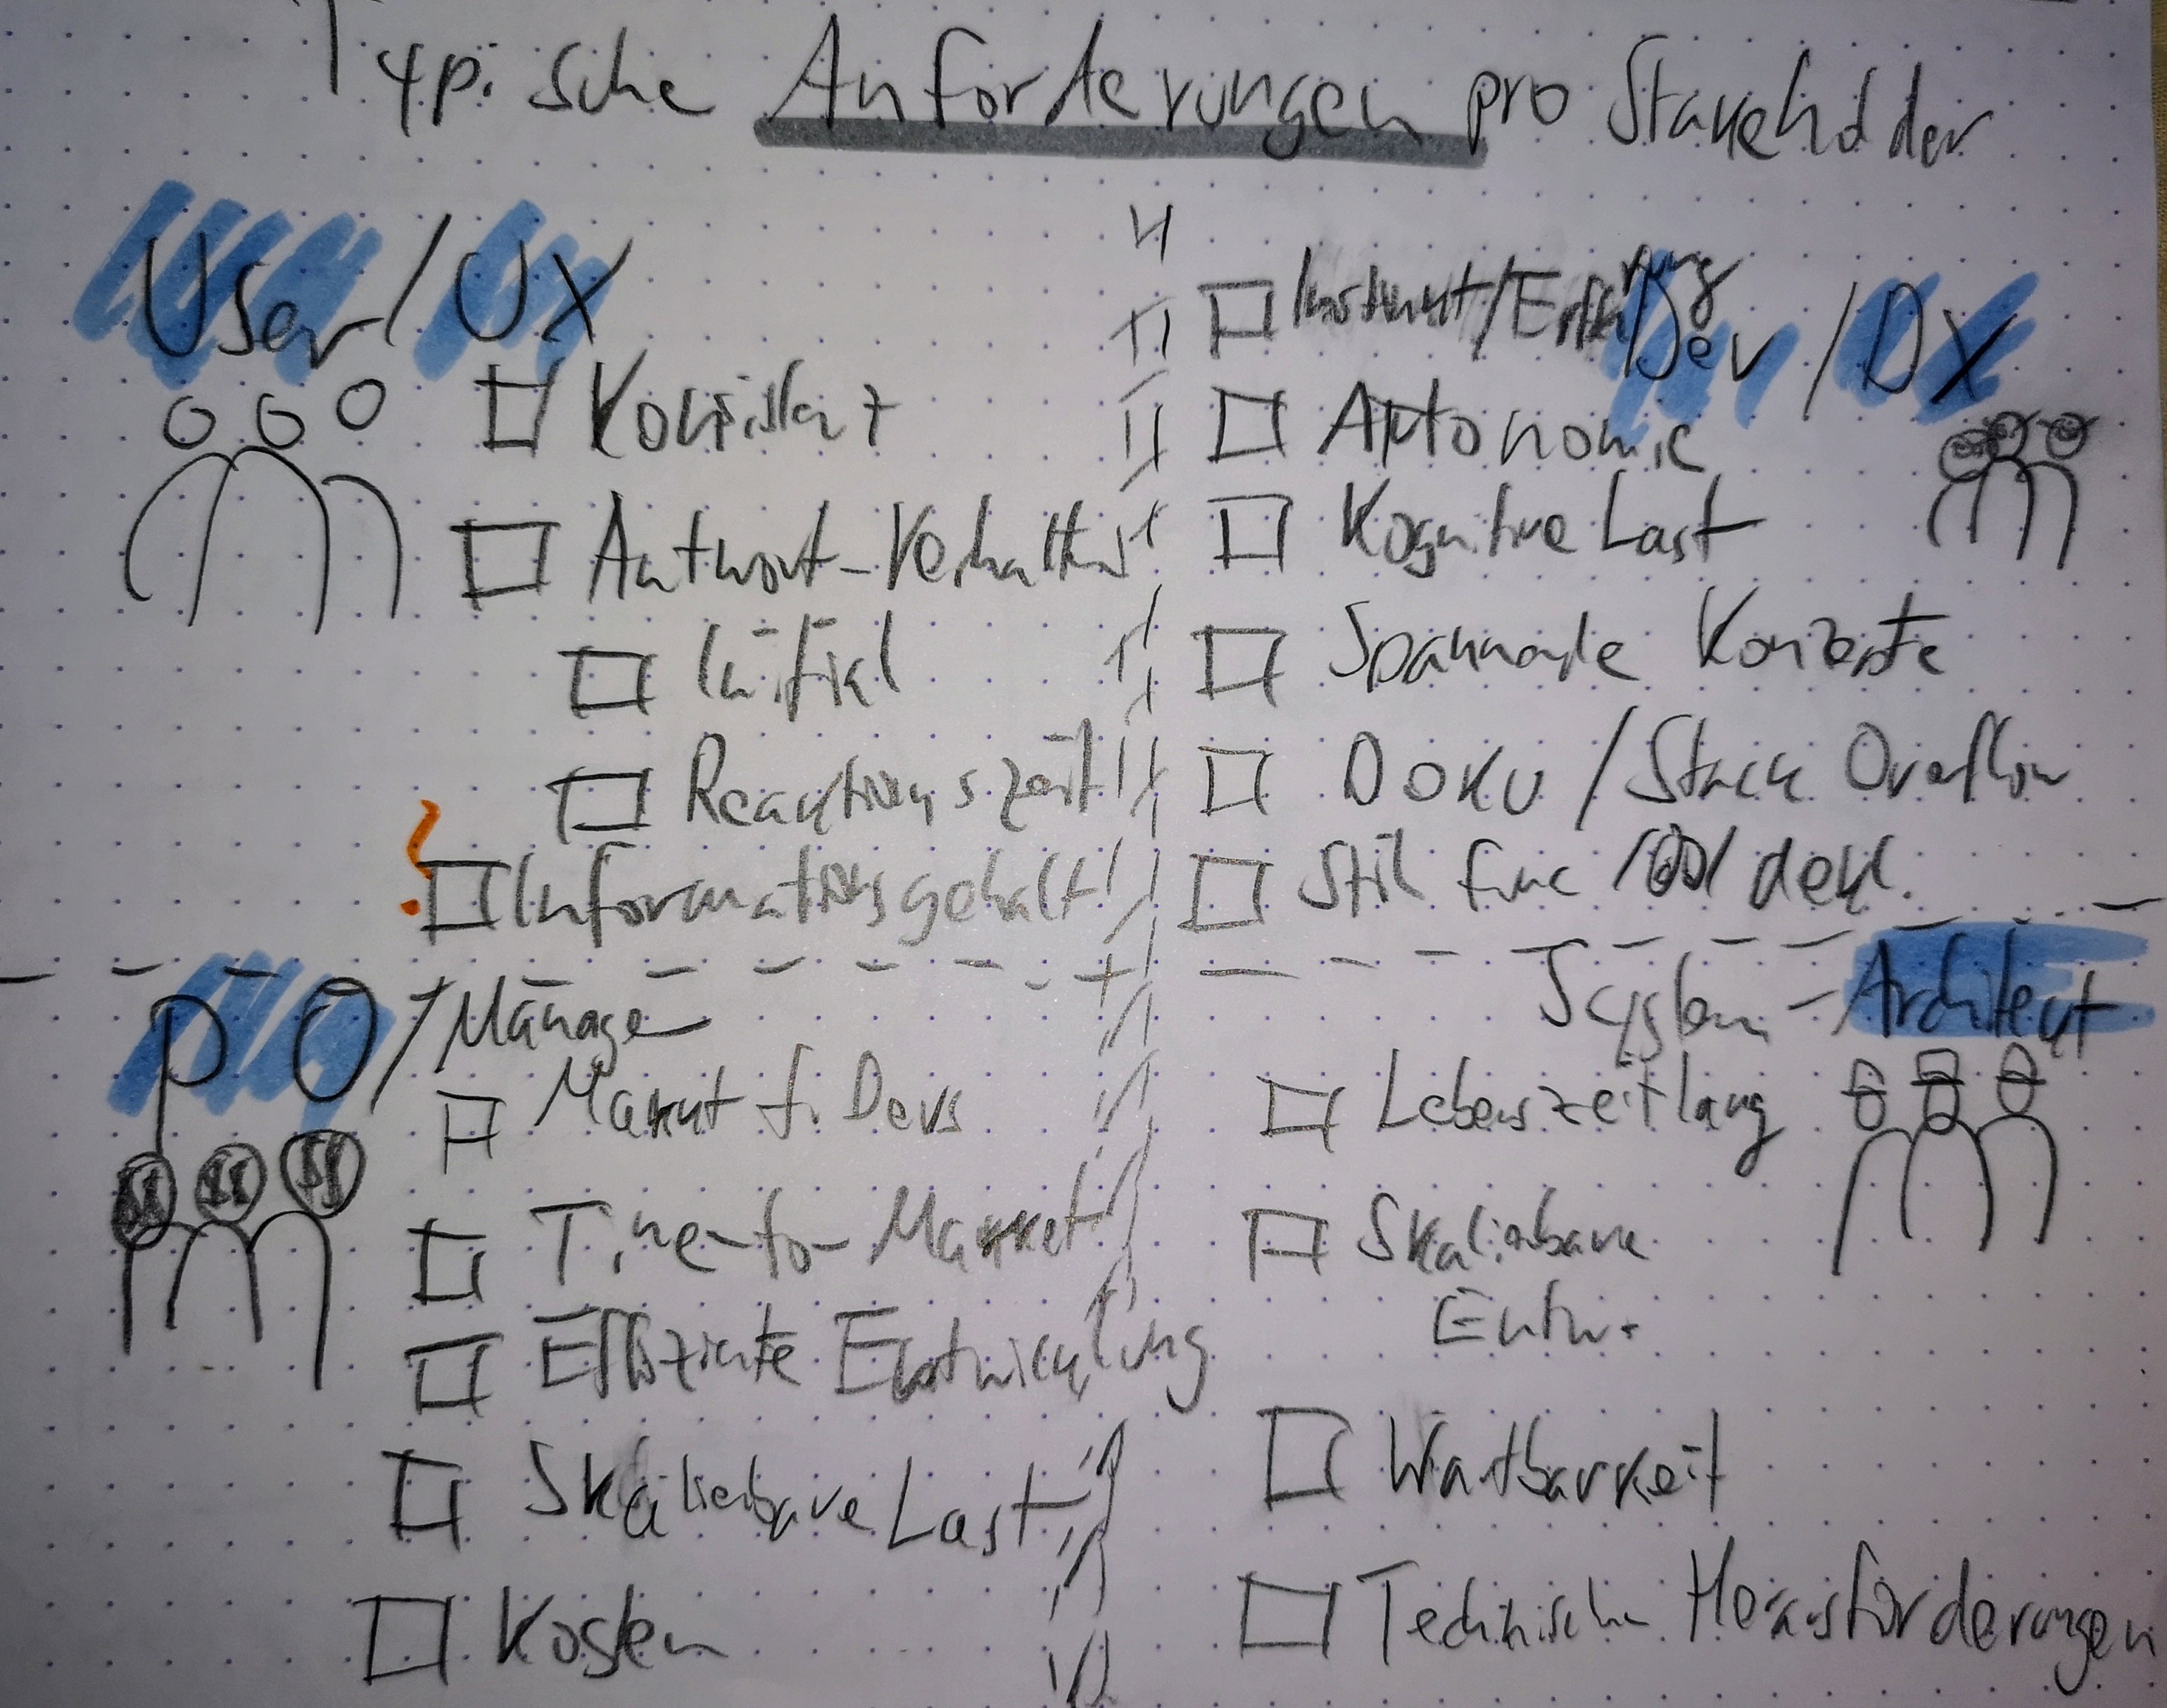 Typische Anforderungen pro Stakeholder
User/UX
Konsistenz
Antwort-Verhalten
Initial
Reaktionszeit
Informationsgehalt
Instinkt/Erfahrung
Dev/DX
Autonomie
Kognitive Last
Spannende Konzepte
Doku/Stack Overflow
Stil func/OO/dekl.
PO/Manage
Markt f. Devs
Time-to-Market
Effiziente Entwicklung
Skalierbare Last
Kosten
System-Architekt
Lebenszeitlang
Skalierbare
Entw.
Wartbarkeit
Technische Herausforderungen